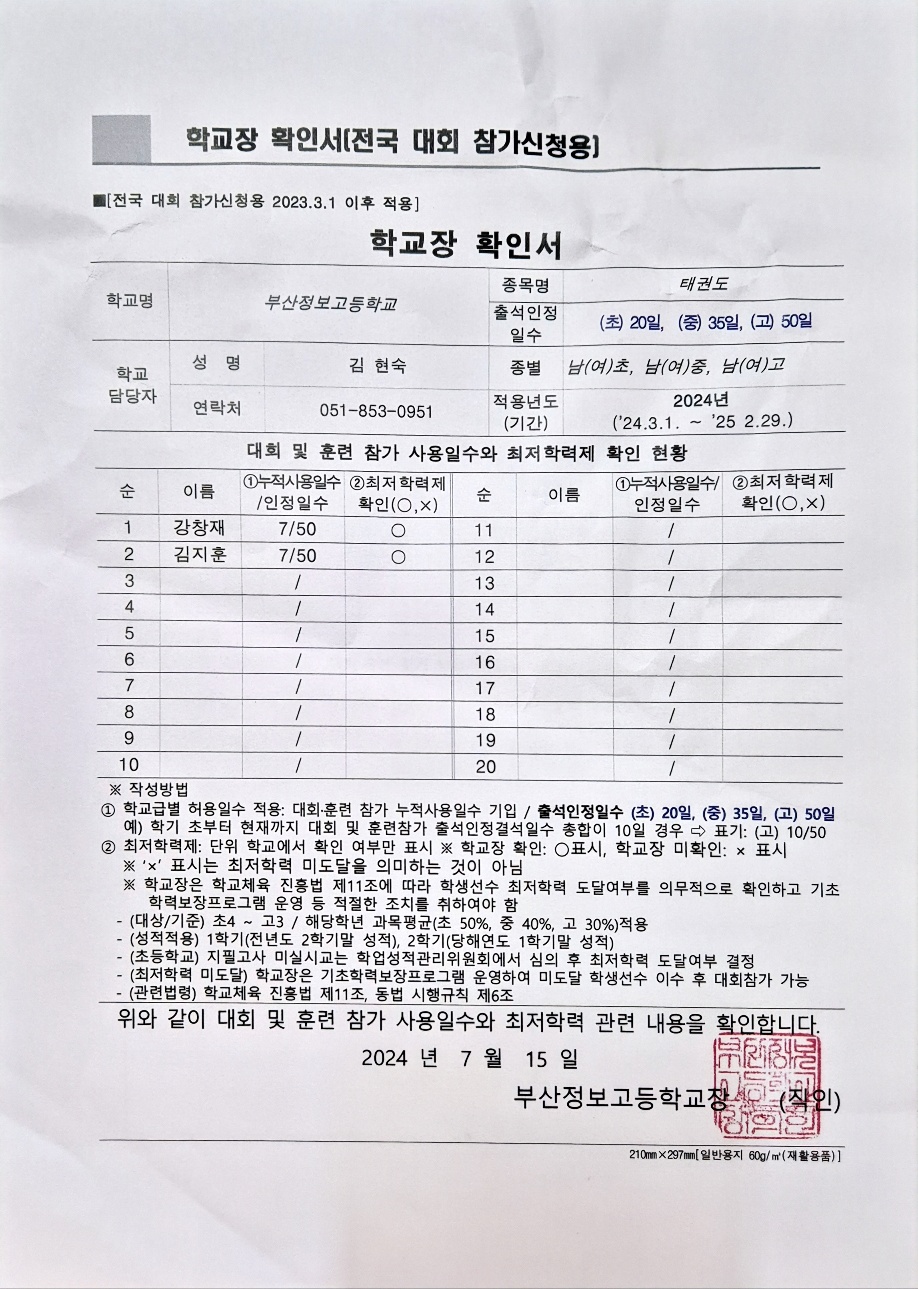 학교장 확인서(전국 대회 참가신청용)
■[전국 대회 참가신청용 2023.3.1 이후 적용]
학교장 확인서
학교명 부산정보고등학교 종목명 태권도
출석인정 일수 (초) 20일, (중) 35일, (고) 50일
학교 담당자 성 명 김 현숙 종별 남(여)초, 남(여)중, 남(여)고
연락처 051-853-0951 적용년도 (기간) 2024년 ('24.3.1. ~ '25 2.29.)
대회 및 훈련 참가 사용일수와 최저학력제 확인 현황
순 이름 ①누적사용일수 /인정일수 ②최저학력제 확인(○,×) 순 이름 ①누적사용일수/ 인정일수 ②최저학력제 확인(○,×)
1 강창재 7/50 ○ 11 /
2 김지훈 7/50 ○ 12 /
3 / 13 /
4 / 14 /
5 / 15 /
6 / 16 /
7 / 17 /
8 / 18 /
9 / 19 /
10 / 20 /
※ 작성방법
① 학교급별 허용일수 적용: 대회·훈련 참가 누적사용일수 기입 / 출석인정일수 (초) 20일, (중) 35일, (고) 50일
예) 학기 초부터 현재까지 대회 및 훈련참가 출석인정결석일수 총합이 10일 경우 ⇨ 표기: (고) 10/50
② 최저학력제: 단위 학교에서 확인 여부만 표시 ※ 학교장 확인: ○표시, 학교장 미확인: × 표시
※ '×' 표시는 최저학력 미도달을 의미하는 것이 아님
※ 학교장은 학교체육 진흥법 제11조에 따라 학생선수 최저학력 도달여부를 의무적으로 확인하고 기초
학력보장프로그램 운영 등 적절한 조치를 취하여야 함
- (대상/기준) 초4 ~ 고3 / 해당학년 과목평균(초 50%, 중 40%, 고 30%)적용
- (성적적용) 1학기(전년도 2학기말 성적), 2학기(당해연도 1학기말 성적)
- (초등학교) 지필고사 미실시교는 학업성적관리위원회에서 심의 후 최저학력 도달여부 결정
- (최저학력 미도달) 학교장은 기초학력보장프로그램 운영하여 미도달 학생선수 이수 후 대회참가 가능
- (관련법령) 학교체육 진흥법 제11조, 동법 시행규칙 제6조
위와 같이 대회 및 훈련 참가 사용일수와 최저학력 관련 내용을 확인합니다.
2024 년 7 월 15 일
부산정보고등학교장 (직인)
210㎜×297㎜[일반용지 60g/㎡(재활용품)]